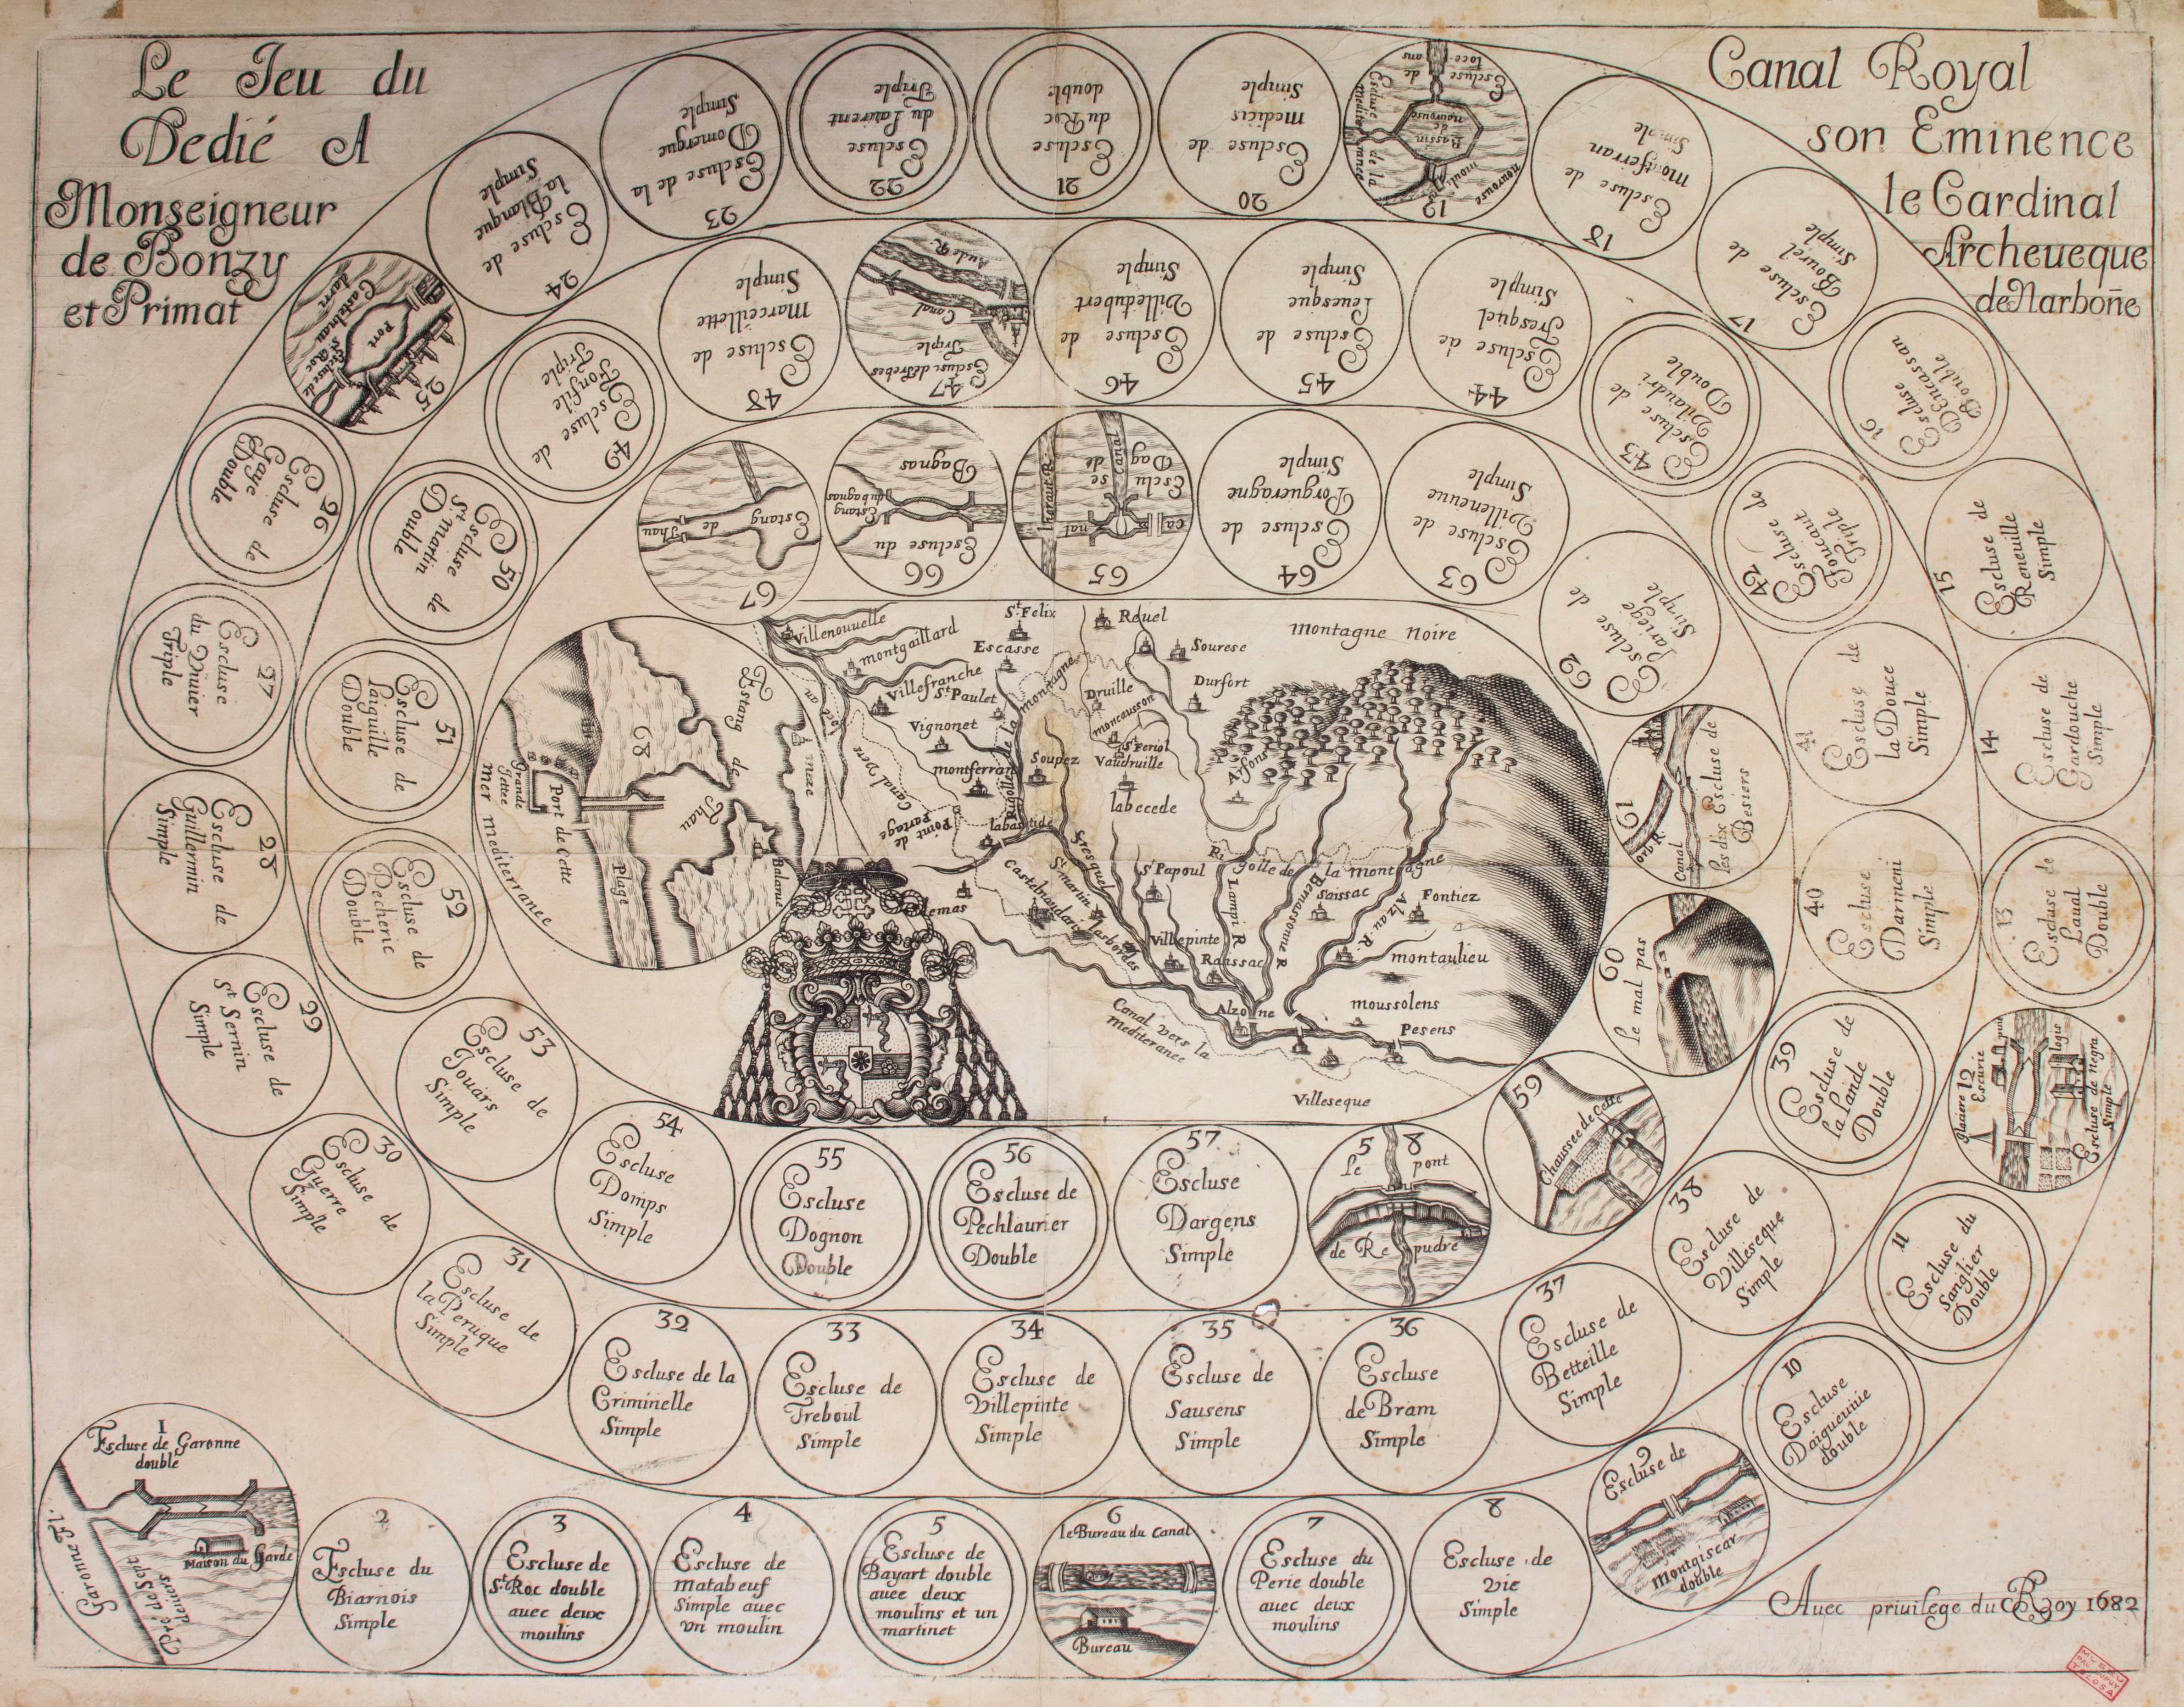 Le Jeu du
Dedié A
Monseigneur
de Bonzy
et Primat
Canal Royal
son Eminence
le Cardinal
Archeueque
de Narboñe
1
Escluse de Garonne
double
Garonne Fl.
Pré des Sept
deniers
Maison du Garde
2
Escluse du
Biarnois
Simple
3
Escluse de
St. Roc double
auec deux
moulins
4
Escluse de
matabeuf
Simple auec
vn moulin
5
Escluse de
Bayart double
auec deux
moulins et un
martinet
6
le Bureau du Canal
Bureau
7
Escluse du
Perie double
auec deux
moulins
8
Escluse de
vic
Simple
9
Escluse de
Montgiscar
double
10
Escluse
Daigueuiue
double
11
Escluse du
Sanglier
Double
12
Escurie
logis
Escluse de negra
Simple
13
Escluse de
Laual
Double
14
Escluse de
Gardouche
Simple
15
Escluse de
Reneuille
Simple
16
Escluse
DEncassan
Double
17
Escluse de
Bourel
Simple
18
Escluse de
montferran
Simple
19
Bassin
de
nourouse
Escluse de la
mediteranneé
Escluse de
loce ans
20
Escluse de
medicis
Simple
21
Escluse
du Roc
double
22
Escluse
du Laurent
Triple
23
Escluse de la
Domergue
Simple
24
Escluse de
la Planque
Simple
25
Port
Castelnau
darri
Escluse de
St Roc
26
Escluse de
Gaye
Double
27
Escluse
du Viuier
Triple
28
Escluse de
Guillermin
Simple
29
Escluse de
St Sernin
Simple
30
Escluse de
Guerre
Simple
31
Escluse de
la Peruque
Simple
32
Escluse de la
Criminelle
Simple
33
Escluse de
Treboul
Simple
34
Escluse de
Villepinte
Simple
35
Escluse de
Sausens
Simple
36
Escluse
de Bram
Simple
37
Escluse de
Betteille
Simple
38
Escluse de
Villeseque
Simple
39
Escluse de
la Lande
Double
40
Escluse
Darmeni
Simple
41
Escluse de
la Douce
Simple
42
Escluse de
Foucaut
Triple
43
Escluse de
Vilaudri
Double
44
Escluse de
Fresquel
Simple
45
Escluse de
Leuesque
Simple
46
Escluse de
Villedubert
Simple
47
Escluse de Trebes
Triple
Canal
Aude R.
48
Escluse de
marceillette
Simple
49
Escluse de
Fonfile
Triple
50
Escluse de
St martin
Double
51
Escluse de
Laiguille
Double
52
Escluse de
Pecheric
Double
53
Escluse de
Jouars
Simple
54
Escluse
Domps
Simple
55
Escluse
Dognon
Double
56
Escluse de
Pechlaurier
Double
57
Escluse
Dargens
Simple
58
Le pont
de Re pudre
59
Chaussee de Cesse
60
le mal pas
61
Orb R.
Canal
les dix Escluse de
Besiers
62
Escluse de
Pariege
Simple
63
Escluse de
Villeneuue
Simple
64
Escluse de
Porgueragne
Simple
65
Esclu se
Dag de
Canal
heraut R.
ca nal
66
Escluse du
Bagnas
Estang
du bagnas
67
Estang de Thau
68
Estang de
Thau
Meze
Balaruc
Plage
Port de Cette
Grande
Jettée
mer mediterranee
Villenouuelle
montgaillard
Villefranche
St Paulet
Vignonet
montferran
St. Felix
Escasse
Reuel
Sourese
Durfort
Montagne Noire
Druille
moncausson
St Feriol
Vaudruille
Soupez
labecede
Arfons
Canal vers
Point de
Partage
labastide
Castelnaudari
St martin
Lasbordes
Fresquel
St Papoul
Rigolle de la montagne
Lampi R
Bernassonne R
Alzau R.
Saissac
Fontiez
Villepinte
Raissac
montaulieu
Alzonne
moussolens
Pesens
Canal vers la
Mediteranee
Villeseque
Auec priuilege du Roy 1682